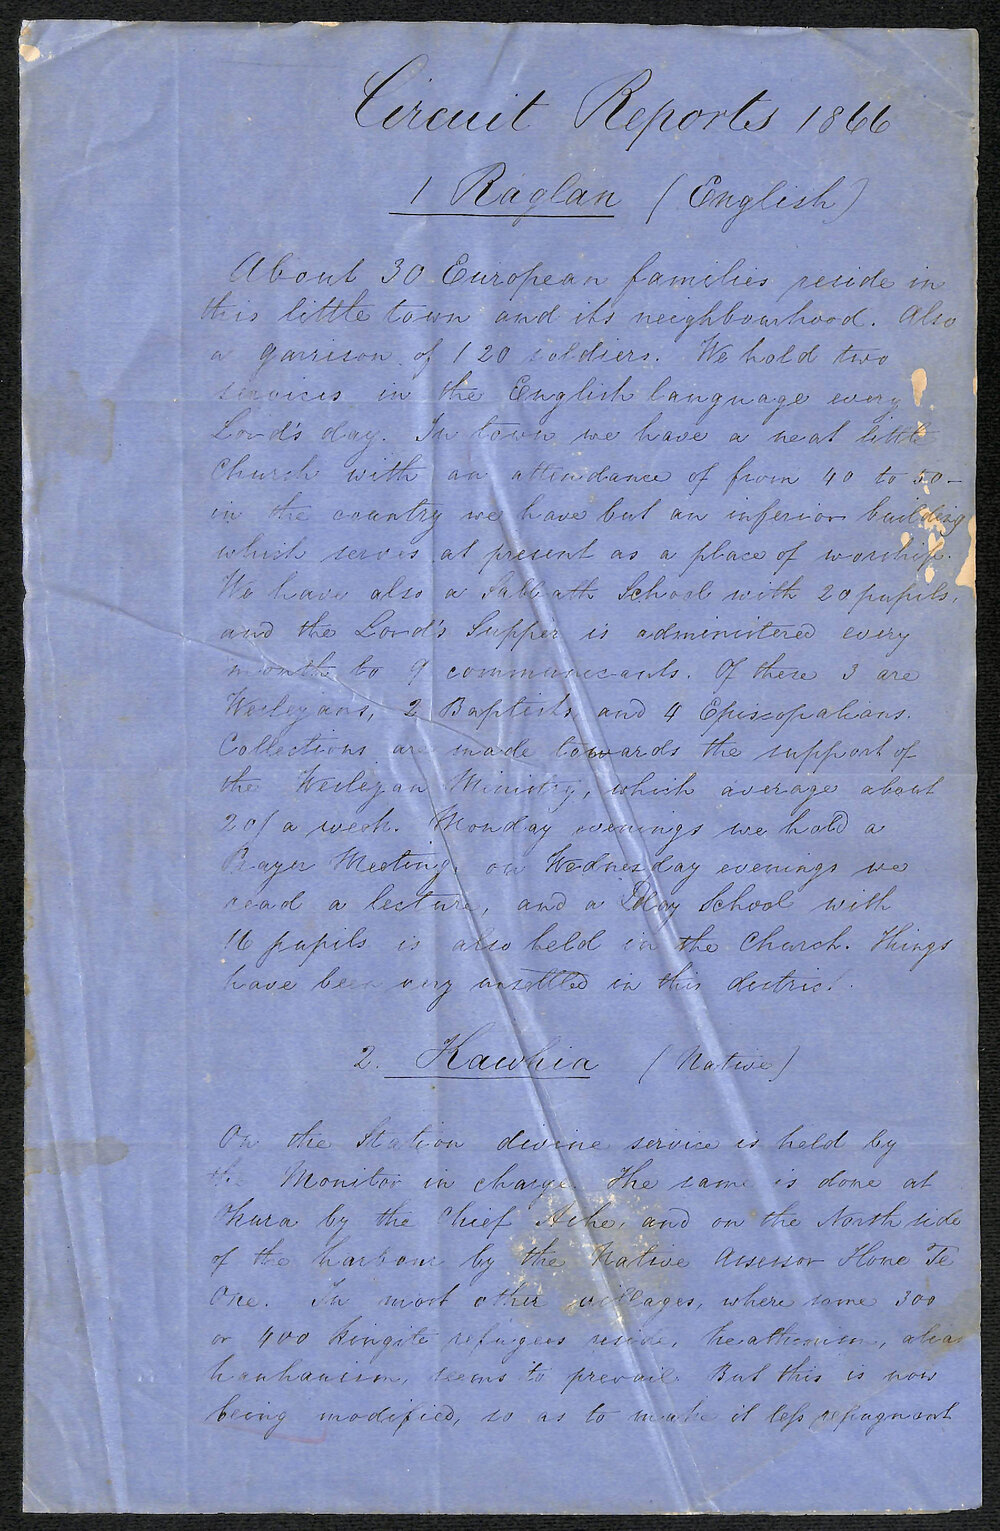 Circuit Reports 1866
1 Raglan (English)
About 30 European families reside in
this little town and its neighbourhood. Also
a garrison of 120 soldiers. We hold two
services in the English language every
Lord's day. In town we have a neat little
Church with an attendance of from 40 to 50 –
in the country we have but an inferior building
which serves at present as a place of worship.
We have also a Sabbath School with 20 pupils,
and the Lord's Supper is administered every
month to 9 communicants. Of these 3 are
Wesleyans, 2 Baptists, and 4 Episcopalians.
Collections are made towards the support of
the Wesleyan Ministry, which average about
20/ a week. Monday evenings we hold a
Prayer Meeting, on Wednesday evenings we
read a lecture, and a Day School with
16 pupils is also held in the Church. Things
have been very unsettled in this district.
2. Kawhia (Native)
On the Station divine service is held by
the Monitor in charge. The same is done at
by the Chief and on the North side
of the harbour by the Native Assessor Hone Te
One. In most other villages, where some 300
or 400 kingite refugees reside, heathenism, alias
hauhauism, seems to prevail. But this is now
being modified, so as to make it less repugnant